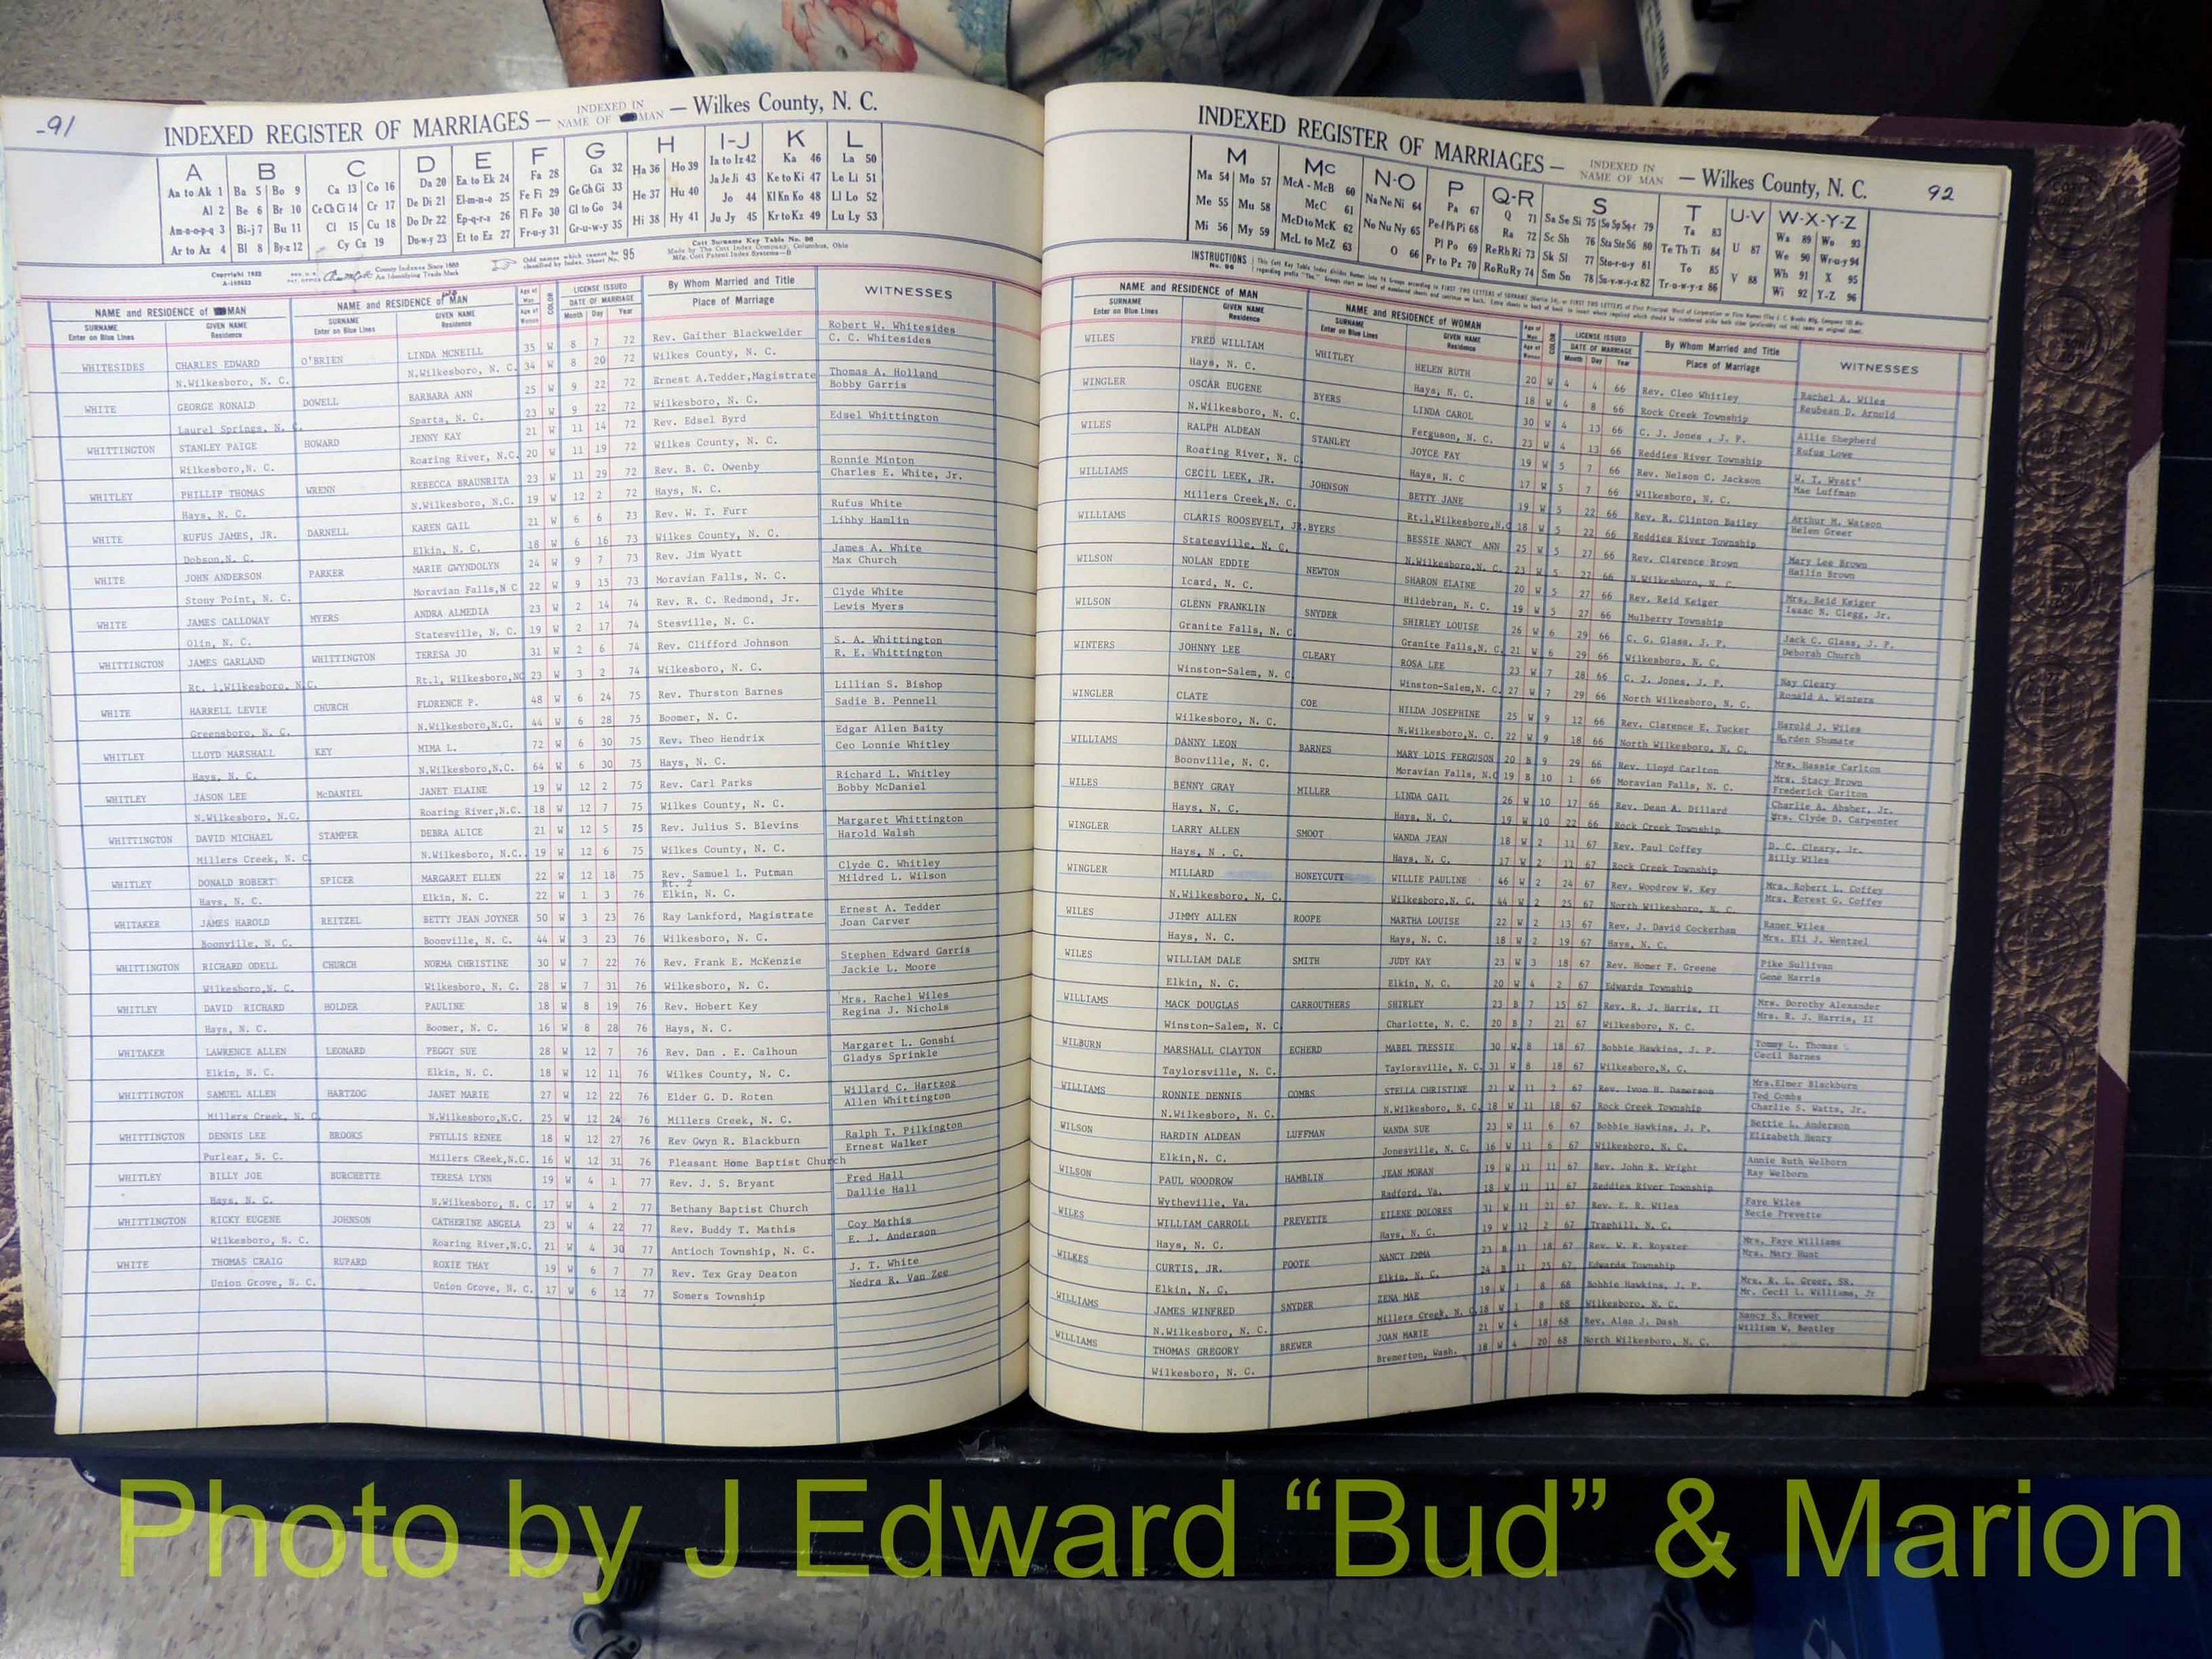 -91
INDEXED REGISTER OF MARRIAGES — INDEXED IN NAME OF MAN — Wilkes County, N. C.
A B C D E F G H I-J K L
Aa to Ak 1 Ba 5 Bo 9 Ca 13 Co 16 Da 20 Ea to Ek 24 Fa 28 Ga 32 Ha 36 Ho 39 Ia to Iz 42 Ka 46 La 50
Al 2 Be 6 Br 10 Ce Ch Ci 14 Cr 17 De Di 21 El-m-n-o 25 Fe Fi 29 Ge Gh Gi 33 He 37 Hu 40 Ja Je Ji 43 Ke to Ki 47 Le Li 51
Am-n-o-p-q 3 Bi-j 7 Bu 11 Cl 15 Cu 18 Do Dr 22 Ep-q-r-s 26 Fl Fo 30 Gl to Go 34 Hi 38 Hy 41 Jo 44 Kl Kn Ko 48 Ll Lo 52
Ar to Az 4 Bl 8 By-z 12 Cy Cz 19 Du-w-y 23 Et to Ez 27 Fr-u-y 31 Gr-u-w-y 35 Ju Jy 45 Kr to Kz 49 Lu Ly 53
NAME and RESIDENCE of MAN NAME and RESIDENCE of WOMAN LICENSE ISSUED By Whom Married and Title WITNESSES
SURNAME GIVEN NAME SURNAME GIVEN NAME DATE OF MARRIAGE Place of Marriage
Enter on Blue Lines Residence Enter on Blue Lines Residence Month Day Year
WHITESIDES CHARLES EDWARD O'BRIEN LINDA MCNEILL 35 W 8 7 72 Rev. Gaither Blackwelder Robert W. Whitesides
N.Wilkesboro, N. C. N.Wilkesboro, N. C. 34 W 8 20 72 Wilkes County, N. C. C. C. Whitesides
WHITE GEORGE RONALD DOWELL BARBARA ANN 25 W 9 22 72 Ernest A.Tedder,Magistrate Thomas A. Holland
Laurel Springs, N. C. Sparta, N. C. 23 W 9 22 72 Wilkesboro, N. C. Bobby Garris
WHITTINGTON STANLEY PAIGE HOWARD JENNY KAY 21 W 11 14 72 Rev. Edsel Byrd Edsel Whittington
Wilkesboro,N. C. Roaring River, N.C. 20 W 11 19 72 Wilkes County, N. C.
WHITLEY PHILLIP THOMAS WRENN REBECCA BRAUNRITA 23 W 11 29 72 Rev. B. C. Owenby Ronnie Minton
Hays, N. C. N.Wilkesboro, N.C. 19 W 12 2 72 Hays, N. C. Charles E. White, Jr.
WHITE RUFUS JAMES, JR. DARNELL KAREN GAIL 21 W 6 6 73 Rev. W. T. Furr Rufus White
Dobson,N. C. Elkin, N. C. 18 W 6 16 73 Wilkes County, N. C. Libby Hamlin
WHITE JOHN ANDERSON PARKER MARIE GWYNDOLYN 24 W 9 7 73 Rev. Jim Wyatt James A. White
Stony Point, N. C. Moravian Falls,N C 22 W 9 15 73 Moravian Falls, N. C. Max Church
WHITE JAMES CALLOWAY MYERS ANDRA ALMEDIA 23 W 2 14 74 Rev. R. C. Redmond, Jr. Clyde White
Olin, N. C. Statesville, N. C. 19 W 2 17 74 Stesville, N. C. Lewis Myers
WHITTINGTON JAMES GARLAND WHITTINGTON TERESA JO 31 W 2 6 74 Rev. Clifford Johnson S. A. Whittington
Rt. 1,Wilkesboro, N.C. Rt.1, Wilkesboro,NC 23 W 3 2 74 Wilkesboro, N. C. R. E. Whittington
WHITE HARRELL LEVIE CHURCH FLORENCE P. 48 W 6 24 75 Rev. Thurston Barnes Lillian S. Bishop
Greensboro, N. C. N.Wilkesboro,N.C. 44 W 6 28 75 Boomer, N. C. Sadie B. Pennell
WHITLEY LLOYD MARSHALL KEY MIMA L. 72 W 6 30 75 Rev. Theo Hendrix Edgar Allen Baity
Hays, N. C. N.Wilkesboro,N.C. 64 W 6 30 75 Hays, N. C. Ceo Lonnie Whitley
WHITLEY JASON LEE McDANIEL JANET ELAINE 19 W 12 2 75 Rev. Carl Parks Richard L. Whitley
N.Wilkesboro, N.C. Roaring River,N.C. 18 W 12 7 75 Wilkes County, N. C. Bobby McDaniel
WHITTINGTON DAVID MICHAEL STAMPER DEBRA ALICE 21 W 12 5 75 Rev. Julius S. Blevins Margaret Whittington
Millers Creek, N. C N.Wilkesboro, N.C. 19 W 12 6 75 Wilkes County, N. C. Harold Walsh
WHITLEY DONALD ROBERT SPICER MARGARET ELLEN 22 W 12 18 75 Rev. Samuel L. Putman Clyde C. Whitley
Rt. 2
Hays, N. C. Elkin, N. C. 22 W 1 3 76 Elkin, N. C. Mildred L. Wilson
WHITAKER JAMES HAROLD REITZEL BETTY JEAN JOYNER 50 W 3 23 76 Ray Lankford, Magistrate Ernest A. Tedder
Boonville, N. C. Boonville, N. C. 44 W 3 23 76 Wilkesboro, N. C. Joan Carver
WHITTINGTON RICHARD ODELL CHURCH NORMA CHRISTINE 30 W 7 22 76 Rev. Frank E. McKenzie Stephen Edward Garris
Wilkesboro,N. C. Wilkesboro, N. C. 28 W 7 31 76 Wilkesboro, N. C. Jackie L. Moore
WHITLEY DAVID RICHARD HOLDER PAULINE 18 W 8 19 76 Rev. Hobert Key Mrs. Rachel Wiles
Hays, N. C. Boomer, N. C. 16 W 8 28 76 Hays, N. C. Regina J. Nichols
WHITAKER LAWRENCE ALLEN LEONARD PEGGY SUE 28 W 12 7 76 Rev. Dan . E. Calhoun Margaret L. Gonshi
Elkin, N. C. Elkin, N. C. 18 W 12 11 76 Wilkes County, N. C. Gladys Sprinkle
WHITTINGTON SAMUEL ALLEN HARTZOG JANET MARIE 27 W 12 22 76 Elder G. D. Roten Willard C. Hartzog
Millers Creek, N. C. N.Wilkesboro,N.C. 25 W 12 24 76 Millers Creek, N. C. Allen Whittington
WHITTINGTON DENNIS LEE BROOKS PHYLLIS RENEE 18 W 12 27 76 Rev Gwyn R. Blackburn Ralph T. Pilkington
Purlear, N. C. Millers CReek,N.C. 16 W 12 31 76 Pleasant Home Baptist Church Ernest Walker
WHITLEY BILLY JOE BURCHETTE TERESA LYNN 19 W 4 1 77 Rev. J. S. Bryant Fred Hall
Hays, N. C. N.Wilkesboro, N. C. 17 W 4 2 77 Bethany Baptist Church Dallie Hall
WHITTINGTON RICKY EUGENE JOHNSON CATHERINE ANGELA 23 W 4 22 77 Rev. Buddy T. Mathis Coy Mathis
Wilkesboro, N. C. Roaring River,N.C. 21 W 4 30 77 Antioch Township, N. C. E. J. Anderson
WHITE THOMAS CRAIG RUPARD ROXIE THAY 19 W 6 7 77 Rev. Tex Gray Deaton J. T. White
Union Grove, N. C. Union Grove, N. C. 17 W 6 12 77 Somers Township Nedra R. Van Zee
INDEXED REGISTER OF MARRIAGES — INDEXED IN NAME OF MAN — Wilkes County, N. C. 92
M Mc N-O P Q-R S T U-V W-X-Y-Z
Ma 54 Mo 57 McA - McB 60 Na Ne Ni 64 Pa 67 Q 71 Sa Se Si 75 So Sp Sq-r 79 Ta 83 U 87 Wa 89 Wo 93
Me 55 Mu 58 McC 61 No Nu Ny 65 Pe-f Ph Pi 68 Ra 72 Sc Sh 76 Sta Ste Sti 80 Te Th Ti 84 V 88 We 90 Wr-u-y 94
Mi 56 My 59 McD to McK 62 O 66 Pl Po 69 Re Rh Ri 73 Sk Sl 77 Sto-r-u-y 81 To 85 Wh 91 X 95
McL to McZ 63 Pr to Pz 70 Ro Ru Ry 74 Sm Sn 78 Su-v-w-y-z 82 Tr-u-w-y-z 86 Wi 92 Y-Z 96
NAME and RESIDENCE of MAN NAME and RESIDENCE of WOMAN LICENSE ISSUED By Whom Married and Title WITNESSES
SURNAME GIVEN NAME SURNAME GIVEN NAME DATE OF MARRIAGE Place of Marriage
Enter on Blue Lines Residence Enter on Blue Lines Residence Month Day Year
WILES FRED WILLIAM WHITLEY HELEN RUTH 20 W 4 4 66 Rev. Cleo Whitley Rachel A. Wiles
Hays, N. C. Hays, N. C. 18 W 4 8 66 Rock Creek Township Reubean D. Arnold
WINGLER OSCAR EUGENE BYERS LINDA CAROL 30 W 4 13 66 C. J. Jones , J. P. Allie Shepherd
N.Wilkesboro, N. C. Ferguson, N. C. 23 W 4 13 66 Reddies River Township Rufus Lowe
WILES RALPH ALDEAN STANLEY JOYCE FAY 19 W 5 7 66 Rev. Nelson C. Jackson W. T. Wyatt
Roaring River, N. C Hays, N. C 17 W 5 7 66 Wilkesboro, N. C. Mae Luffman
WILLIAMS CECIL LEEK, JR. JOHNSON BETTY JANE 19 W 5 22 66 Rev. R. Clinton Bailey Arthur M. Watson
Millers Creek,N. C. Rt.1,Wilkesboro,N.C 18 W 5 22 66 Reddies River Township Helen Greer
WILLIAMS CLARIS ROOSEVELT, JR. BYERS BESSIE NANCY ANN 25 W 5 27 66 Rev. Clarence Brown Mary Lee Brown
Statesville, N. C. N.Wilkesboro,N. C. 23 W 5 27 66 N.Wilkesboro, N. C. Hailin Brown
WILSON NOLAN EDDIE NEWTON SHARON ELAINE 20 W 5 27 66 Rev. Reid Keiger Mrs. Reid Keiger
Icard, N. C. Hildebran, N. C. 19 W 5 27 66 Mulberry Township Isaac N. Clegg, Jr.
WILSON GLENN FRANKLIN SNYDER SHIRLEY LOUISE 26 W 6 29 66 C. G. Glass, J. P. Jack C. Glass, J. P.
Granite Falls, N. C Granite Falls,N. C. 21 W 6 29 66 Wilkesboro, N. C. Deborah Church
WINTERS JOHNNY LEE CLEARY ROSA LEE 23 W 7 28 66 C. J. Jones, J. P. Ray Cleary
Winston-Salem, N. C Winston-Salem,N. C. 27 W 7 29 66 North Wilkesboro, N. C. Ronald A. Winters
WINGLER CLATE COE HILDA JOSEPHINE 25 W 9 12 66 Rev. Clarence E. Tucker Harold J. Wiles
Wilkesboro, N. C. N.Wilkesboro,N. C. 22 W 9 18 66 North Wilkesboro, N. C. Harden Shumate
WILLIAMS DANNY LEON BARNES MARY LOIS FERGUSON 20 B 9 29 66 Rev. Lloyd Carlton Mrs. Hassie Carlton
Boonville, N. C. Moravian Falls, N.C 19 B 10 1 66 Moravian Falls, N. C. Mrs. Stacy Brown
Frederick Carlton
WILES BENNY GRAY MILLER LINDA GAIL 26 W 10 17 66 Rev. Dean A. Dillard Charlie A. Absher, Jr.
Hays, N. C. Hays, N. C. 19 W 10 22 66 Rock Creek Township Mrs. Clyde D. Carpenter
WINGLER LARRY ALLEN SMOOT WANDA JEAN 18 W 2 11 67 Rev. Paul Coffey D. C. Cleary, Jr.
Hays, N . C. Hays, N. C. 17 W 2 12 67 Rock Creek Township Billy Wiles
WINGLER MILLARD HONEYCUTT WILLIE PAULINE 46 W 2 24 67 Rev. Woodrow W. Key Mrs. Robert L. Coffey
N.Wilkesboro, N. C. Wilkesboro,N. C. 44 W 2 25 67 North Wilkesboro, N. C. Mrs. Forest G. Coffey
WILES JIMMY ALLEN ROOPE MARTHA LOUISE 22 W 2 13 67 Rev. J. David Cockerham Raner Wiles
Hays, N. C. Hays, N. C. 18 W 2 19 67 Hays, N. C. Mrs. Eli J. Wentzel
WILES WILLIAM DALE SMITH JUDY KAY 23 W 3 18 67 Rev. Homer F. Greene Pike Sullivan
Elkin, N. C. Elkin, N. C. 20 W 4 2 67 Edwards Township Gene Harris
WILLIAMS MACK DOUGLAS CARROUTHERS SHIRLEY 23 B 7 15 67 Rev. R. J. Harris, II Mrs. Dorothy Alexander
Winston-Salem, N. C Charlotte, N. C. 20 B 7 21 67 Wilkesboro, N. C. Mrs. R. J. Harris, II
WILBURN MARSHALL CLAYTON ECHERD MABEL TRESSIE 30 W 8 18 67 Bobbie Hawkins, J. P. Tommy L. Thomas
Taylorsville, N. C. Taylorsville, N. C. 31 W 8 18 67 Wilkesboro,N. C. Cecil Barnes
WILLIAMS RONNIE DENNIS COMBS STELLA CHRISTINE 21 W 11 2 67 Rev. Ivon H. Damerson Mrs.Elmer Blackburn
Ted Combs
N.Wilkesboro, N. C. N.Wilkesboro, N. C. 18 W 11 18 67 Rock Creek Township Charlie S. Watts, Jr.
WILSON HARDIN ALDEAN LUFFMAN WANDA SUE 23 W 11 6 67 Bobbie Hawkins, J. P. Bettie L. Anderson
Elkin,N. C. Jonesville, N. C. 16 W 11 6 67 Wilkesboro, N. C. Elizabeth Henry
WILSON PAUL WOODROW HAMBLIN JEAN MORAN 19 W 11 11 67 Rev. John R. Wright Annie Ruth Welborn
Wytheville, Va. Radford, Va. 18 W 11 11 67 Reddies River Township Ray Welborn
WILES WILLIAM CARROLL PREVETTE EILENE DOLORES 31 W 11 21 67 Rev. E. R. Wiles Faye Wiles
Hays, N. C. Hays, N. C. 19 W 12 2 67 Traphill, N. C. Necie Prevette
WILKES CURTIS, JR. POOTE NANCY EMMA 23 B 11 18 67 Rev. W. R. Royster Mrs. Faye Williams
Elkin, N. C. Elkin, N. C. 24 B 11 25 67 Edwards Township Mrs. Mary Hunt
WILLIAMS JAMES WINFRED SNYDER ZENA MAE 19 W 1 8 68 Bobbie Hawkins, J. P. Mrs. R. L. Greer, SR.
N.Wilkesboro, N. C. Millers Creek, N. C. 18 W 1 8 68 Wilkesboro, N. C. Mr. Cecil L. Williams, Jr
WILLIAMS THOMAS GREGORY BREWER JOAN MARIE 21 W 4 18 68 Rev. Alan J. Dash Nancy S. Brewer
Wilkesboro, N. C. Bremerton, Wash. 18 W 4 20 68 North Wilkesboro, N. C. William W. Bentley
Photo by J Edward “Bud” & Marion